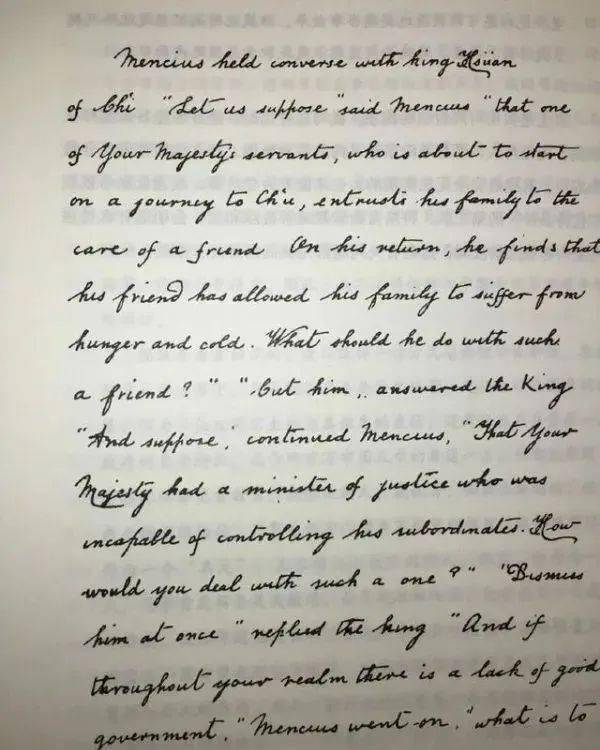 Mencius held converse with king Hsüan
of Ch'i "Let us suppose" said Mencius "that one
of Your Majesty's servants, who is about to start
on a journey to Ch'u, entrusts his family to the
care of a friend On his return, he finds that
his friend has allowed his family to suffer from
hunger and cold. What should he do with such
a friend?" "Cut him, answered the King
"And suppose, continued Mencius, "That Your
Majesty had a minister of justice who was
incapable of controlling his subordinates. How
would you deal with such a one?" "Dismiss
him at once" replied the king "And if
throughout your realm there is a lack of good
government," Mencius went on, "what is to